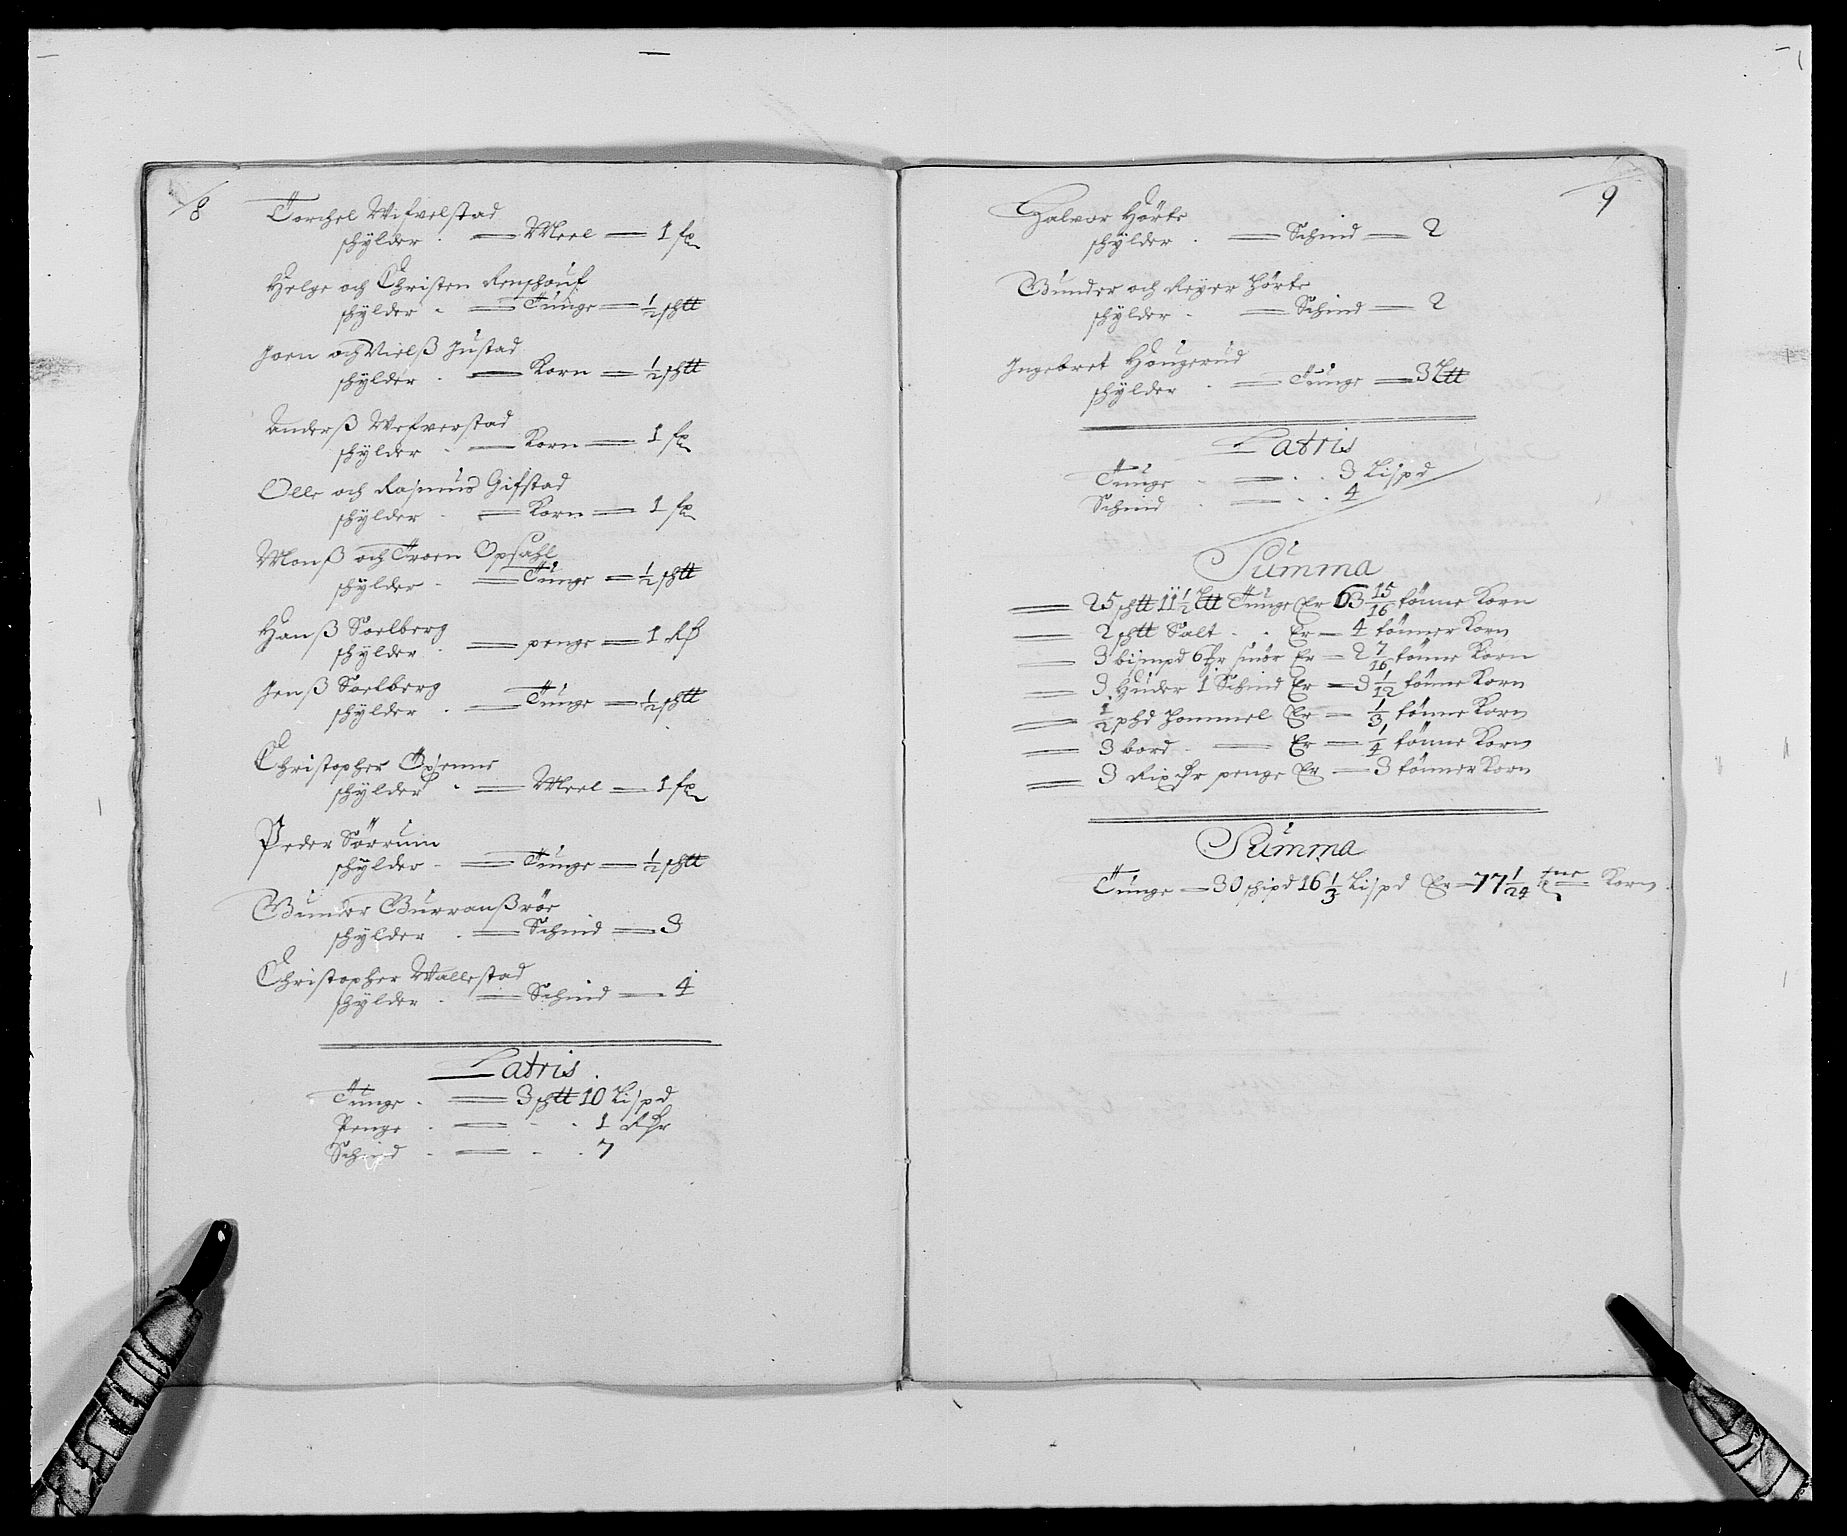 8
Torchel Wifvelstad
schÿlder. Meel 1 fr
Helge och Christen Renschouf
schÿlder. Tunge ½ schtt
Joen och Nielß Justad
schÿlder. Korn ½ schtt
Anderß Wefverstad
schÿlder. Korn 1 fr
Olle och Rasmus Gifstad
schÿlder. Korn 1 fr
Monß och Troen Opsahl
schÿlder. Tunge ½ schtt
Hanß Soelberg
schÿlder. penge 1 Rß
Jenß Soelberg
schÿlder. Tunge ½ schtt
Christopher Opsenne
schÿlder. Meel 1 fr
Peder Sörrum
schÿlder. Tunge ½ schtt
Gunder Gurranßröe
schÿlder. Schind 3
Christopher Wallestad
schÿlder. Schind 4
Latris
Tunge. 3 schtt 10 Lispd
Penge 1 Rdr
Schind 7
9
Halvor Hörte
schÿlder. Schind 2
Gunder och Reyer Hörte
schÿlder. Schind 2
Ingebret Hougerud
schÿlder. Tunge 3 Ltt
Latris
Tunge 3 Lispd
Schind 4
Summa
25 schtt 11½ Ltt Tunge Er 63 15/16 tönne Korn
2 schtt Salt Er 4 tönner Korn
3 bismpd 6 smör Er 2 7/16 tönne Korn
3 Huder 1 Schind Er 3 1/12 tönne Korn
½ phd Hommel Er 1/3 tönne Korn
3 bord Er 1/4 tönne Korn
3 Rixdr penge Er 3 tönner Korn
Summa
Tunge 30 schipd 16 1/3 Lispd Er 77 1/24 tne Korn